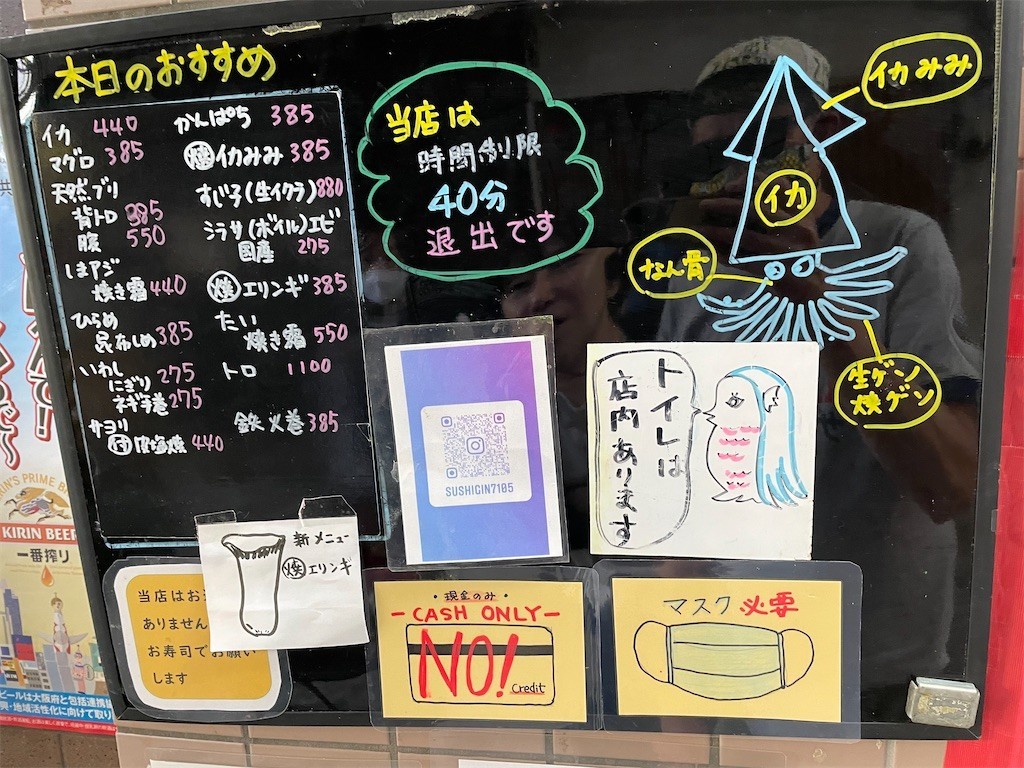 本日のおすすめ
イカ 440
マグロ 385
天然ブリ
背トロ 385
腹 550
しまアジ
焼き霜 440
ひらめ
昆布しめ 385
いわし
にぎり 275
ネギ巻 275
サヨリ
皮塩焼 440
かんぱち 385
焼 イカみみ 385
すじ子(生イクラ) 880
シラサ(ボイル)エビ
国産 275
焼 エリンギ 385
たい
焼き霜 550
トロ 1100
鉄火巻 385
当店は
時間制限
40分
退出です
イカみみ
イカ
なん骨
生ゲソ
焼ゲソ
SUSHIGIN7105
トイレは
店内あります
新メニュー
焼 エリンギ
当店はお
ありません
お寿司でお願い
します
・現金のみ・
-CASH ONLY-
NO!
Credit
マスク必要
KIRIN'S PRIME BE
KIRIN BEER
一番搾り
ビールは大阪府と包括連携
興・地域活性化に向けて取り